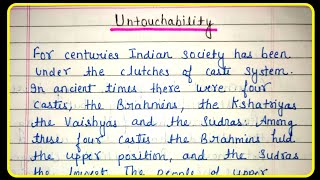 Untouchability
For centuries Indian society has been
under the clutches of caste system.
In ancient times there were four
castes, the Brahmins, the Kshatriyas
the Vaishyas and the Sudras. Among
these four castes the Brahmins had
the upper position, and the Sudras
the lowest. The people of upper